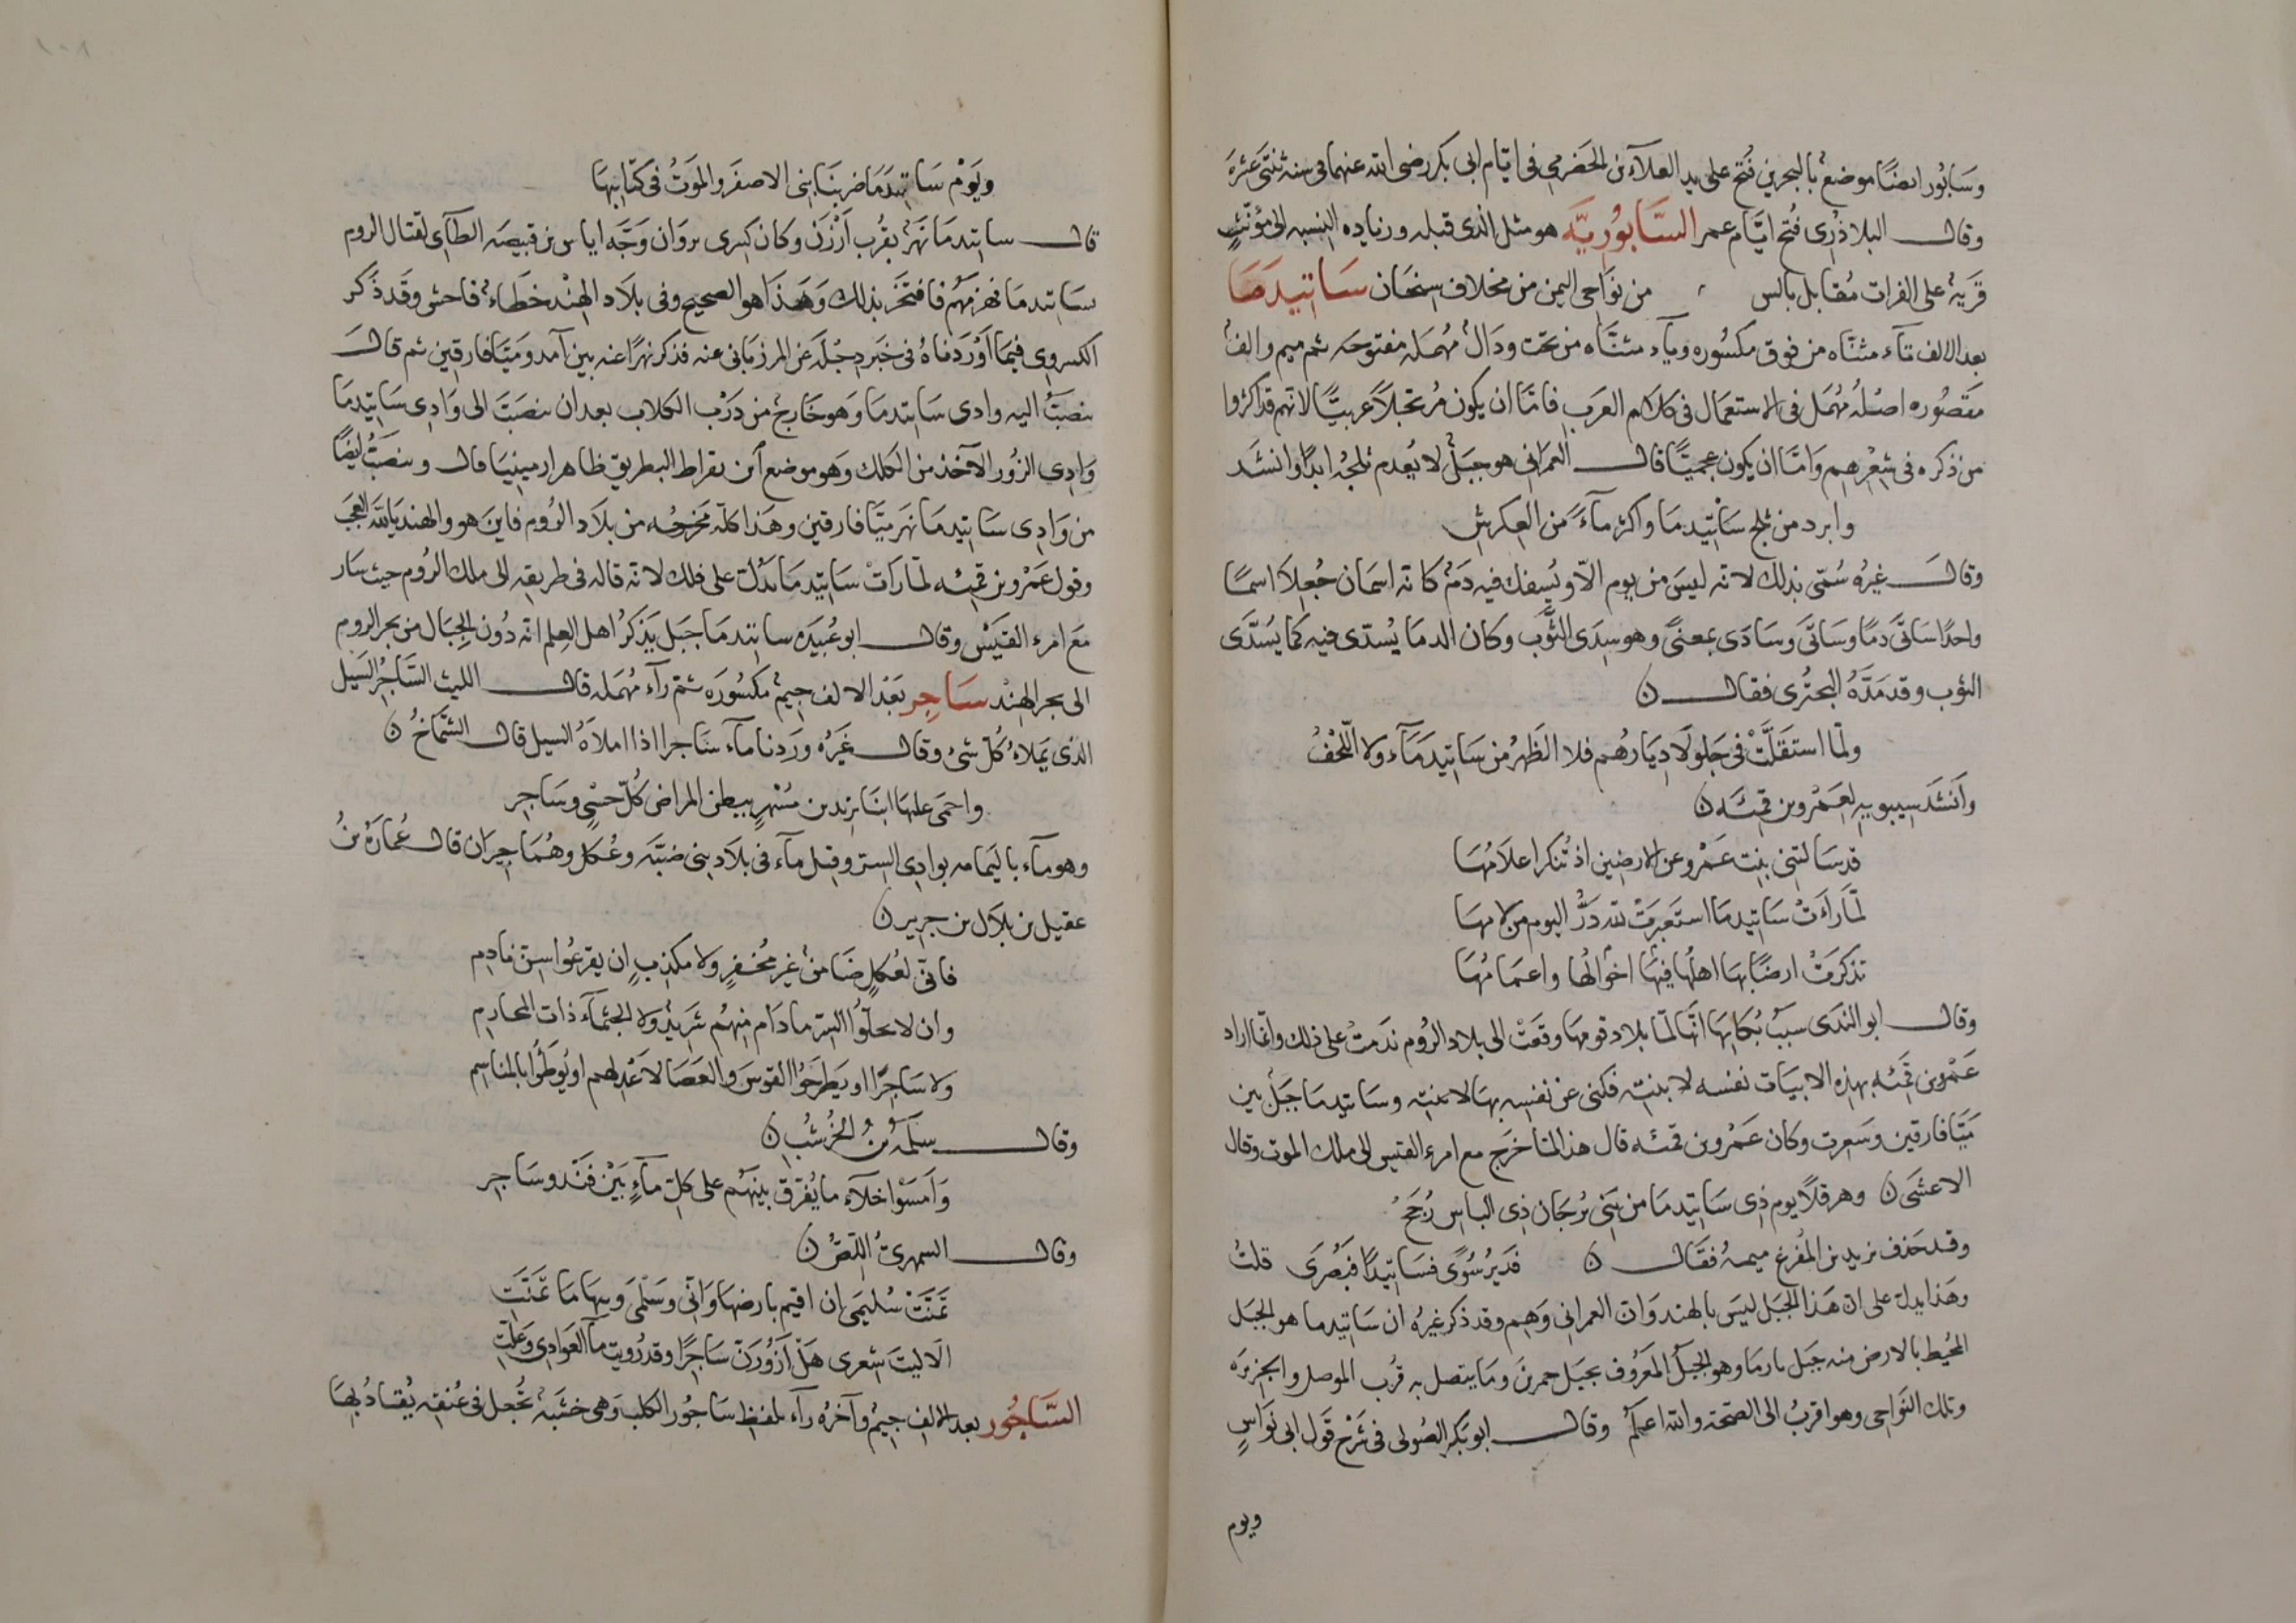 وسابور ايضًا موضع بالبحرين فُتح على يد العلآء بن الحضرمي فى ايام ابى بكر رضى الله عنهما فى سنه ثنتى عشرة
وقال البلاذرى فُتح ايّام عمر السَّابُورِيَّه هو مثل الذى قبله وزياده النسبه الى مؤنّث
قرية على الفرات مُقابل بالس من نواحى اليمن من مخلاف سنحان سَاتيدَمَا
بعد الالف تآء مثنّاه من فوق مكسُوره ويآء مثنّاه من تحت ودالٌ مُهمَله مفتوحه ثم ميم والفٌ
مقصُوره اصلُه مُهمَل فى الاستعمال فى كلام العرب فامّا ان يكون مُرتجلاً عربيًّا لانهم قد اكثروا
من ذكره فى شِعْرِهِم وَامّا ان يكون عجميًّا قال العمرانى هو جبَلٌ لا يُعدم ثلجُه ابدًا وانشَد
وابرد من ثلج سَاتيدما واكثر مآءً من العِكرش
وقال غيرُه سُمّى بذلك لانه ليسَ من يوم الاّ ويُسفك فيه دَمٌ كانه اسمان جُعِلا اسمًا
واحدًا سَاتَى دمًا وسَاتَى وسَادَى بمعنىً وهو سِدَى الثَّوب وكان الدما يُسدّى فيه كما يُسدّى
الثوب وقد مَدَّهُ البحترى فقال ن
ولمّا استقلَّتْ فى جَلولا دِيَارهُم فلا الظَهرُ من سَاتيدمَآء ولا اللّحْفُ
وَانشَد سيبويه لِعَمْرو بن قمئَه ن
قد سَالتنى بِنت عَمْرو عن الارضِين اذ تُنكر اعلامُهَا
لمّا رَاَتْ سَاتيدما استَعبرَتْ لله دَرُّ اليوم من لامهَا
تذكرَتْ ارضًا بهَا اهلُها فيهَا اخوالُها واعمَامُهَا
وقال ابو الندَى سبَبُ بُكايهَا انّها لمّا بلاد قومهَا وقعَتْ الى بلاد الرُوم نَدمتْ على ذلك وانّما اراد
عَمْرو بن قمئَه بهذه الابيَات نفسه لا بنته فكنى عن نفسِه بهَا لا بنته وسَاتيدما جبَلٌ بين
ميّافارقين وسَعِرت وكان عَمْرو بن قمئَه قال هذا لمّا خرَج مع امرء القيس الى ملك الموت وقال
الاعشَى ن وهرقلاً يوم ذِى سَاتيدما من بَنِى بُرجَان ذِى الباس رُجَحْ
وقد حَذف يزيد بن المُفرغ ميمهُ فقَال ن فدَير سُوَى فسَاتيدًا فبُصرَى قلتُ
وهَذا يدل على انّ هَذا الجبَل ليسَ بالهند وَان العمرانى وَهِم وقد ذكر غيرُه ان سَاتيدما هو الجبَل
المحُيط بالارض منه جبَل بارما وهو الجبلُ المَعرُوف بجَبل حمرين وما يتصل به قُرب الموصل والجزيَره
وتلك النَواحى وهو اقربُ الى الصحّة والله اعلَم وقال ابو بَكر الصُولى فى شَرْح قَول ابى نَواسٍ
ويوم
ويَوْم سَاتيدَمَا ضرَبنَا بنى الاصفَر والموَتُ فى كتَايبهَا
قال ساتيدما نَهرٌ بقُرب اَرْزَن وكان كِسرى پروان وَجَّه اياس بن قبيصَه الطآى لقتال الروم
بسَاتيدما فهزمَهُم فافتخَر بذلك وَهَذَا هو الصحيح وفى بلاَد الهِنْد خطاءٌ فاحش وقَد ذَكر
الكسروى فيمَا اَوْرَدناهُ فى خَبَر دِجْلَه عَن المرزبانى عنه فذكر نهرًا عنه بين آمد ومَيّافارقين ثم قال
ينصبّ اليه وادى سَاتيدما وَهو خَارجٌ من دَرْب الكلاب بعد ان ينصَبّ الى وَادِى سَاتيدما
وَادِى الزُور الآخذ من الكلك وَهو موضع ابن بقراط البطريق ظاهر ارمينيَا قال وينصَبّ ايضًا
من وَادِى سَاتيدما نهَر ميّافارقين وهَذا كلّه مخرجُه من بلاَد الرُوم فاينَ هو والهند يالله العَجَب
وقول عَمْرو بن قمئه لمّا رَاَتْ سَاتيدما يَدُلّ على ذلك لانه قاله فى طريقِه الى ملك الرُوم حيث سَار
مَع امرء القَيسْ وقال ابو عُبَيَده ساتيدما جبَل يَذكرُ اهل العِلم انّه دُون الجبَال من بحر الروم
الى بحر الهِنْد سَاجِر بعَد الالف جيمٌ مكسُورَه ثم رآء مُهمَله قال الليث السَّاجِرُ السَيل
الذى يَملاءُ كُلّ شئ وقال غَيرُه وَرَدنا مآء سَاجرا اذا املاَهُ السيل قال الشّمَّاخُ ن
واحمَى عليهَا ابنَا يزيد بن مُسْهرٍ ببطن المراض كُلّ حسْىٍ وسَاجِر
وهو مآء باليَمامه بوادِى السِتر وقيل مآء فى بلاَد بنى ضبَّه وعُكل وهُمَا جيرَان قال عُمارَهُ بنُ
عقيل بن بلاَل بن جرير ن
فانّى لعُكلٍ ضَامنٌ غير مُخفرٍ ولا مكذبٍ ان يقرعُوا سِنّ نادِم
وان لا يحلّوُا السِّر مادَام منهُم شَريدٌ ولا الخثمآء ذات المحارِم
ولا سَاجِرًا او يَطرَحُوا القوسَ والعصَا لاعدَايهم او يُوطَئُوا بالمناسِم
وقال سَلَمهُ بنُ الخُرشُبِ ن
وَامسَوْا خلآء ما يُفرّق بينَهُم على كل مآءٍ بَيْن فَنْد وسَاجِر
وقال السمهرىُّ اللّصُّ ن
تمنَّتْ سُليمَى ان اقيم بارضهَا وَانّى وسَلْمَى ويبهَا ما تمنَّتِ
الاَ ليتَ شِعرى هَلْ اَزُورَنّ سَاجِرًا وقد رُويت مآ الغَوادِى وعلّتِ
السَّاجُور بعد الالف جيمٌ وآخرُه رآء بلفظ سَاجُور الكلب وَهى خشبَةٌ تُجعل فى عُنقه يُقتادُ بهَا